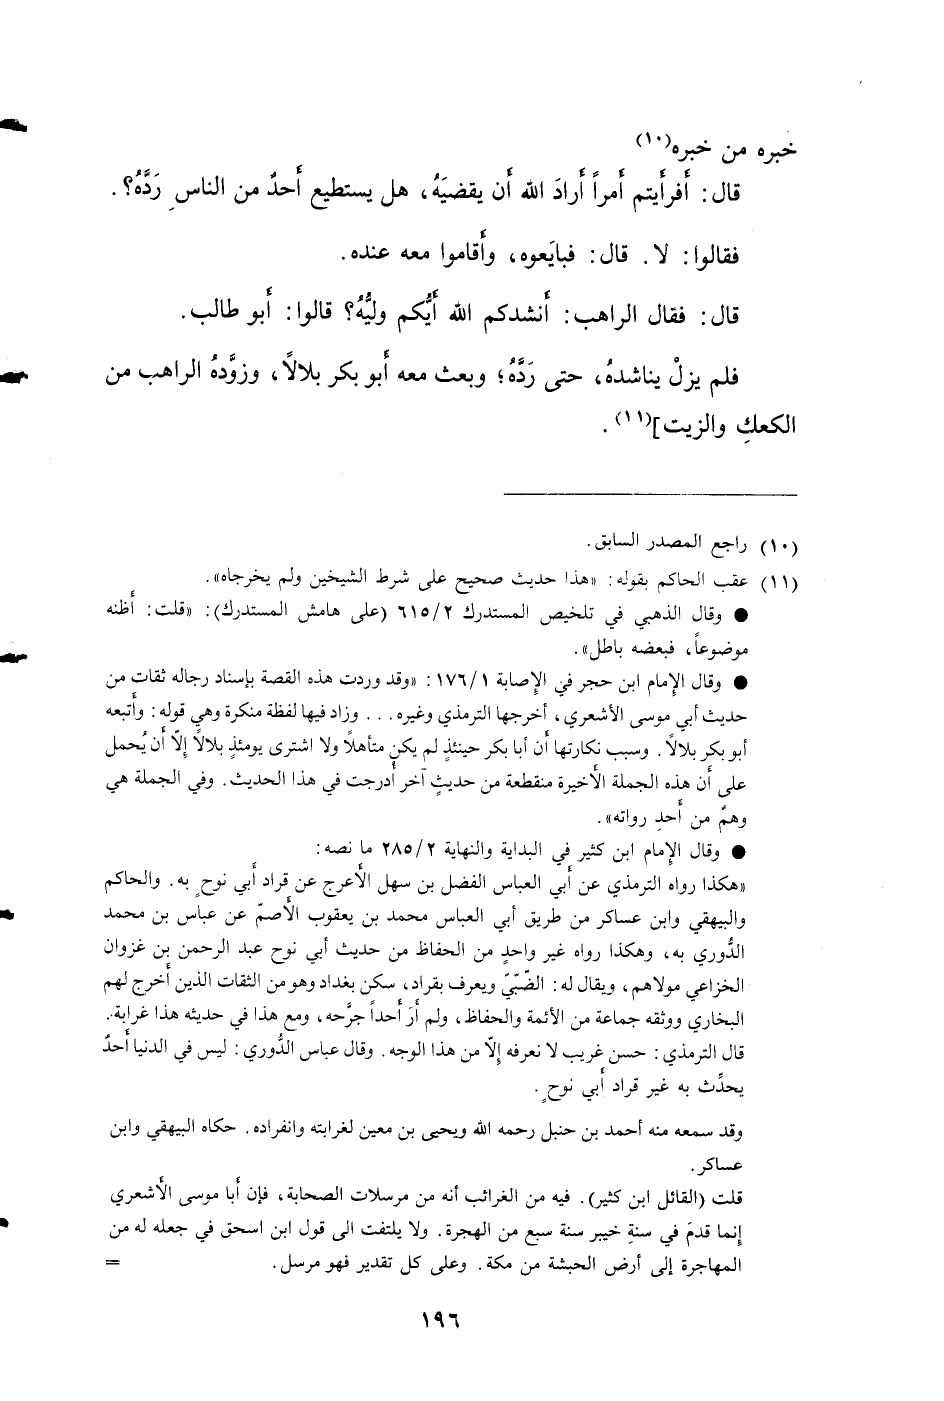 خبره من خبره(١٠)
قال: أَفرأَيتم أَمراً أَرادَ الله أَن يقضيَهُ، هل يستطيع أَحدٌ من الناسِ رَدَّهُ؟.
فقالوا: لا. قال: فبايَعوه، وأَقاموا معه عنده.
قال: فقال الراهب: أَنشدكم الله أَيُّكم وليُّهُ؟ قالوا: أَبو طالب.
فلم يزلْ يناشدهُ، حتى رَدَّهُ؛ وبعث معه أَبو بكر بلالاً، وزوَّدهُ الراهب من
الكعكِ والزيت](١١).
(١٠) راجع المصدر السابق.
(١١) عقب الحاكم بقوله: «هذا حديث صحيح على شرط الشيخين ولم يخرجاه».
● وقال الذهبي في تلخيص المستدرك ٦١٥/٢ (على هامش المستدرك): «قلت: أَظنه
موضوعاً، فبعضه باطل».
● وقال الإِمام ابن حجر في الإِصابة ١٧٦/١: «وقد وردت هذه القصة بإِسناد رجاله ثقات من
حديث أَبي موسى الأَشعري، أَخرجها الترمذي وغيره... وزاد فيها لفظة منكرة وهي قوله: وأَتبعه
أَبو بكر بلالاً. وسبب نكارتها أَن أَبا بكر حينئذٍ لم يكن متأَهلاً ولا اشترى يومئذٍ بلالاً إِلّا أَن يُحمل
على أَن هذه الجملة الأَخيرة منقطعة من حديثٍ آخر أُدرجت في هذا الحديث. وفي الجملة هي
وهمٌ من أَحدِ رواته».
● وقال الإِمام ابن كثير في البداية والنهاية ٢٨٥/٢ ما نصه:
«هكذا رواه الترمذي عن أَبي العباس الفضل بن سهل الأَعرج عن قراد أَبي نوحٍ به. والحاكم
والبيهقي وابن عساكر من طريق أَبي العباس محمد بن يعقوب الأَصمّ عن عباس بن محمد
الدُّوري به، وهكذا رواه غير واحدٍ من الحفاظ من حديث أَبي نوح عبد الرحمن بن غزوان
الخزاعي مولاهم، ويقال له: الضّبّيّ ويعرف بقراد، سكن بغداد وهو من الثقات الذين أَخرج لهم
البخاري ووثقه جماعة من الأَئمة والحفاظ، ولم أَرَ أَحداً جرَّحه، ومع هذا في حديثه هذا غرابة.
قال الترمذي: حسن غريب لا نعرفه إِلّا من هذا الوجه. وقال عباس الدُّوري: ليس في الدنيا أَحدٌ
يحدِّث به غير قراد أَبي نوحٍ.
وقد سمعه منه أَحمد بن حنبل رحمه الله ويحيى بن معين لغرابته وانفراده. حكاه البيهقي وابن
عساكر.
قلت (القائل ابن كثير). فيه من الغرائب أَنه من مرسلات الصحابة، فإِن أَبا موسى الأَشعري
إِنما قدمَ في سنةِ خيبر سنة سبع من الهجرة. ولا يلتفت الى قول ابن اسحق في جعله له من
المهاجرة إِلى أَرض الحبشة من مكة. وعلى كل تقدير فهو مرسل. =
١٩٦